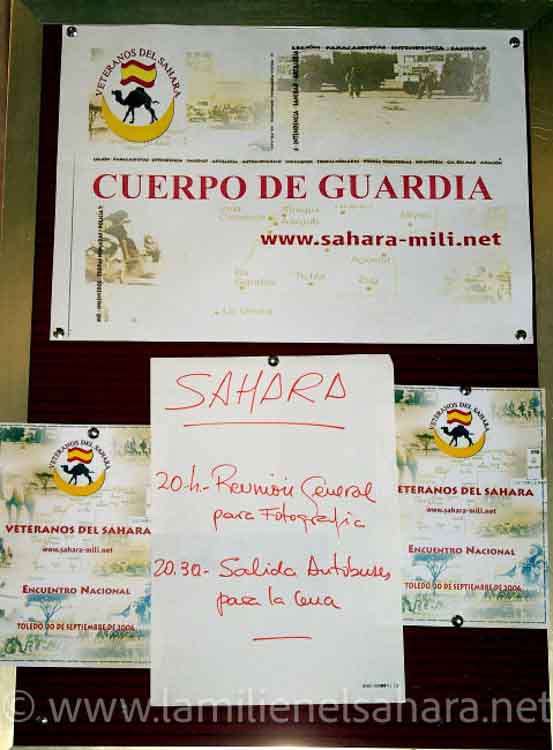 VETERANOS DEL SAHARA
LEGIÓN · PARACAIDISTAS · INTENDENCIA · SANIDAD
CUERPO DE GUARDIA
www.sahara-mili.net
SAHARA
20h.- Reunión General
para Fotografía
20.30.- Salida Autobuses
para la Cena
VETERANOS DEL SAHARA
VETERANOS DEL SAHARA
www.sahara-mili.net
ENCUENTRO NACIONAL
TOLEDO 30 DE SEPTIEMBRE DE 2006
VETERANOS DEL SAHARA
VETERANOS DEL SAHARA
www.sahara-mili.net
ENCUENTRO NACIONAL
TOLEDO 30 DE SEPTIEMBRE DE 2006
© www.lamilienelsahara.net